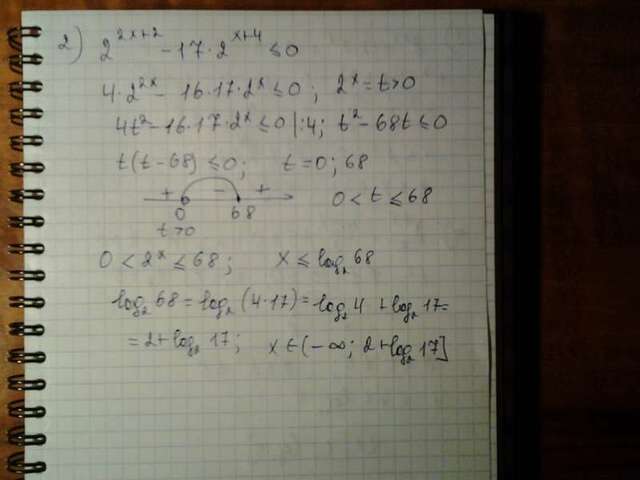 2) 2^{2x+2} - 17·2^{x+4} ≤ 0
4·2^{2x} - 16·17·2^x ≤ 0; 2^x = t > 0
4t^2 - 16·17·2^x ≤ 0 |:4; t^2 - 68t ≤ 0
t(t - 68) ≤ 0; t = 0; 68
+ - + 0 < t ≤ 68
0 68
t>0
0 < 2^x ≤ 68; x ≤ log_2 68
log_2 68 = log_2 (4·17) = log_2 4 + log_2 17 =
= 2 + log_2 17; x ∈ (-∞; 2 + log_2 17]